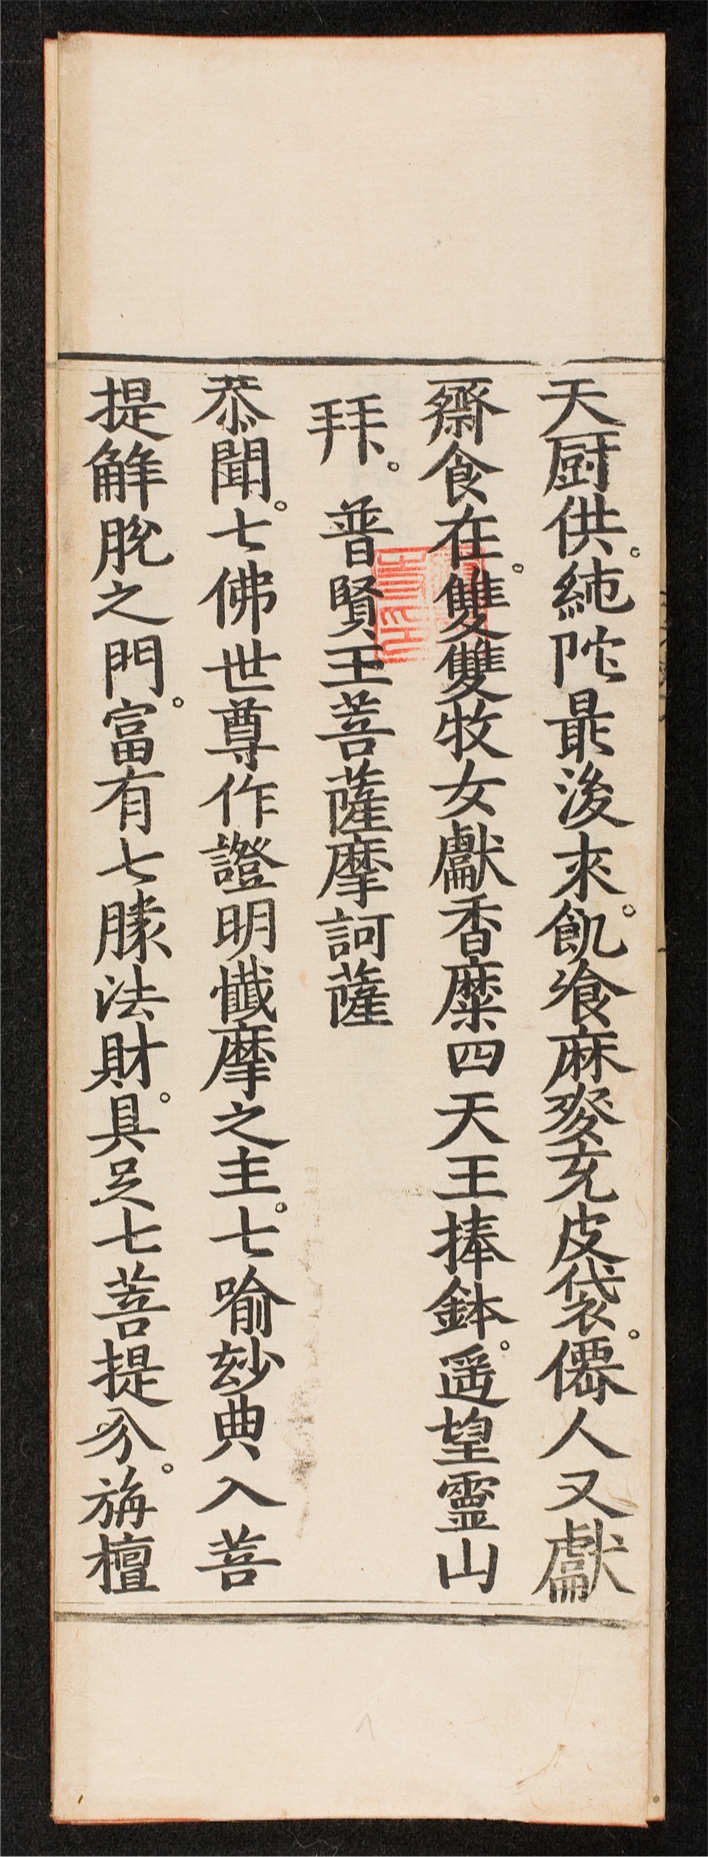 天厨供。純陀最後來。飢飡麻麥充皮袋。僊人又獻
齋食在。雙雙牧女獻香糜四天王捧鉢。遥望靈山
拜。普賢王菩薩摩訶薩
恭聞。七佛世尊作證明懺摩之主。七喻玅典入菩
提解脫之門。富有七滕法財。具足七菩提分。旃檀